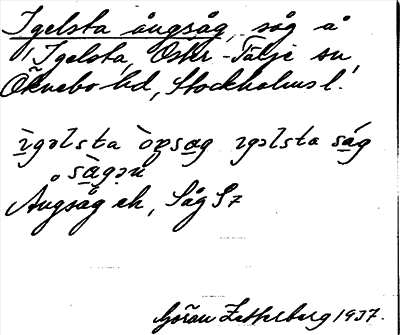 Igelsta ångsåg, såg å
Igelsta, Öster-Tälje sn,
Öknebo hd, Stockholms l.
ìgəlsta ὸŋsag ıgəlsta ság
sàgən
Ångsåg ek, Såg S7
Göran Zetterberg 1937.